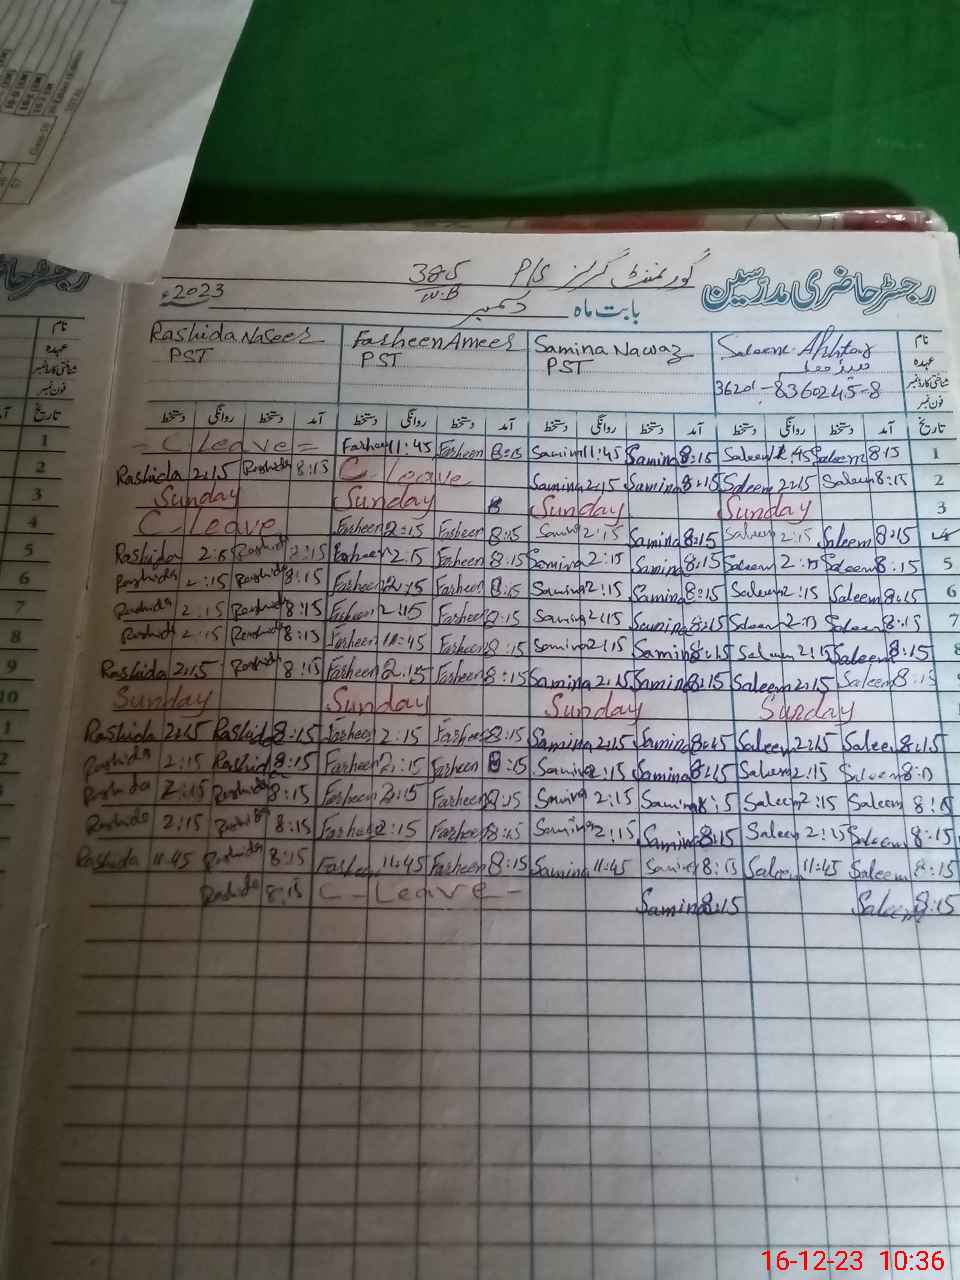 رجسٹر حاضری مدرسین
گورنمنٹ گرلز P/S 385
W.B
بابت ماہ دسمبر 2023ء
نام Saleem Akhtar Samina Nawaz Farheen Ameer Rashida Naseer
عہدہ PST PST PST
شناختی کارڈ نمبر 36201-8360245-8
فون نمبر
تاریخ آمد دستخط روانگی دستخط آمد دستخط روانگی دستخط آمد دستخط روانگی دستخط آمد دستخط روانگی دستخط
C Leave Farheen 11:45 Farheen 8:15 Samina 11:45 Samina 8:15 Saleem 11:45 Saleem 8:15 1
Rashida 2:15 Rashida 8:15 C Leave Samina 2:15 Samina 8:15 Saleem 2:15 Saleem 8:15 2
Sunday Sunday Sunday Sunday 3
C Leave Farheen 2:15 Farheen 8:15 Samina 2:15 Samina 8:15 Saleem 2:15 Saleem 8:15 4
Rashida 2:15 Rashida 2:15 Farheen 2:15 Farheen 8:15 Samina 2:15 Samina 8:15 Saleem 2:15 Saleem 8:15 5
Rashida 2:15 Rashida 8:15 Farheen 2:15 Farheen 8:15 Samina 2:15 Samina 8:15 Saleem 2:15 Saleem 8:15 6
Rashida 2:15 Rashida 8:15 Farheen 2:15 Farheen 8:15 Samina 2:15 Samina 8:15 Saleem 2:15 Saleem 8:15 7
Rashida 2:15 Rashida 8:15 Farheen 11:45 Farheen 8:15 Samina 2:15 Samina 8:15 Saleem 2:15 Saleem 8:15 8
Rashida 2:15 Rashida 8:15 Farheen 2:15 Farheen 8:15 Samina 2:15 Samina 8:15 Saleem 2:15 Saleem 8:15
Sunday Sunday Sunday Sunday
Rashida 2:15 Rashida 8:15 Farheen 2:15 Farheen 8:15 Samina 2:15 Samina 8:15 Saleem 2:15 Saleem 8:15
Rashida 2:15 Rashida 8:15 Farheen 2:15 Farheen 8:15 Samina 2:15 Samina 8:15 Saleem 2:15 Saleem 8:15
Rashida 2:15 Rashida 8:15 Farheen 2:15 Farheen 8:15 Samina 2:15 Samina 8:15 Saleem 2:15 Saleem 8:15
Rashida 2:15 Rashida 8:15 Farheen 2:15 Farheen 8:15 Samina 2:15 Samina 8:15 Saleem 2:15 Saleem 8:15
Rashida 11:45 Rashida 8:15 Farheen 11:45 Farheen 8:15 Samina 11:45 Samina 8:15 Saleem 11:45 Saleem 8:15
Rashida 8:15 C-Leave- Samina 8:15 Saleem 8:15
نام
عہدہ
شناختی کارڈ نمبر
فون نمبر
تاریخ
1
2
3
4
5
6
7
8
9
10
16-12-23 10:36